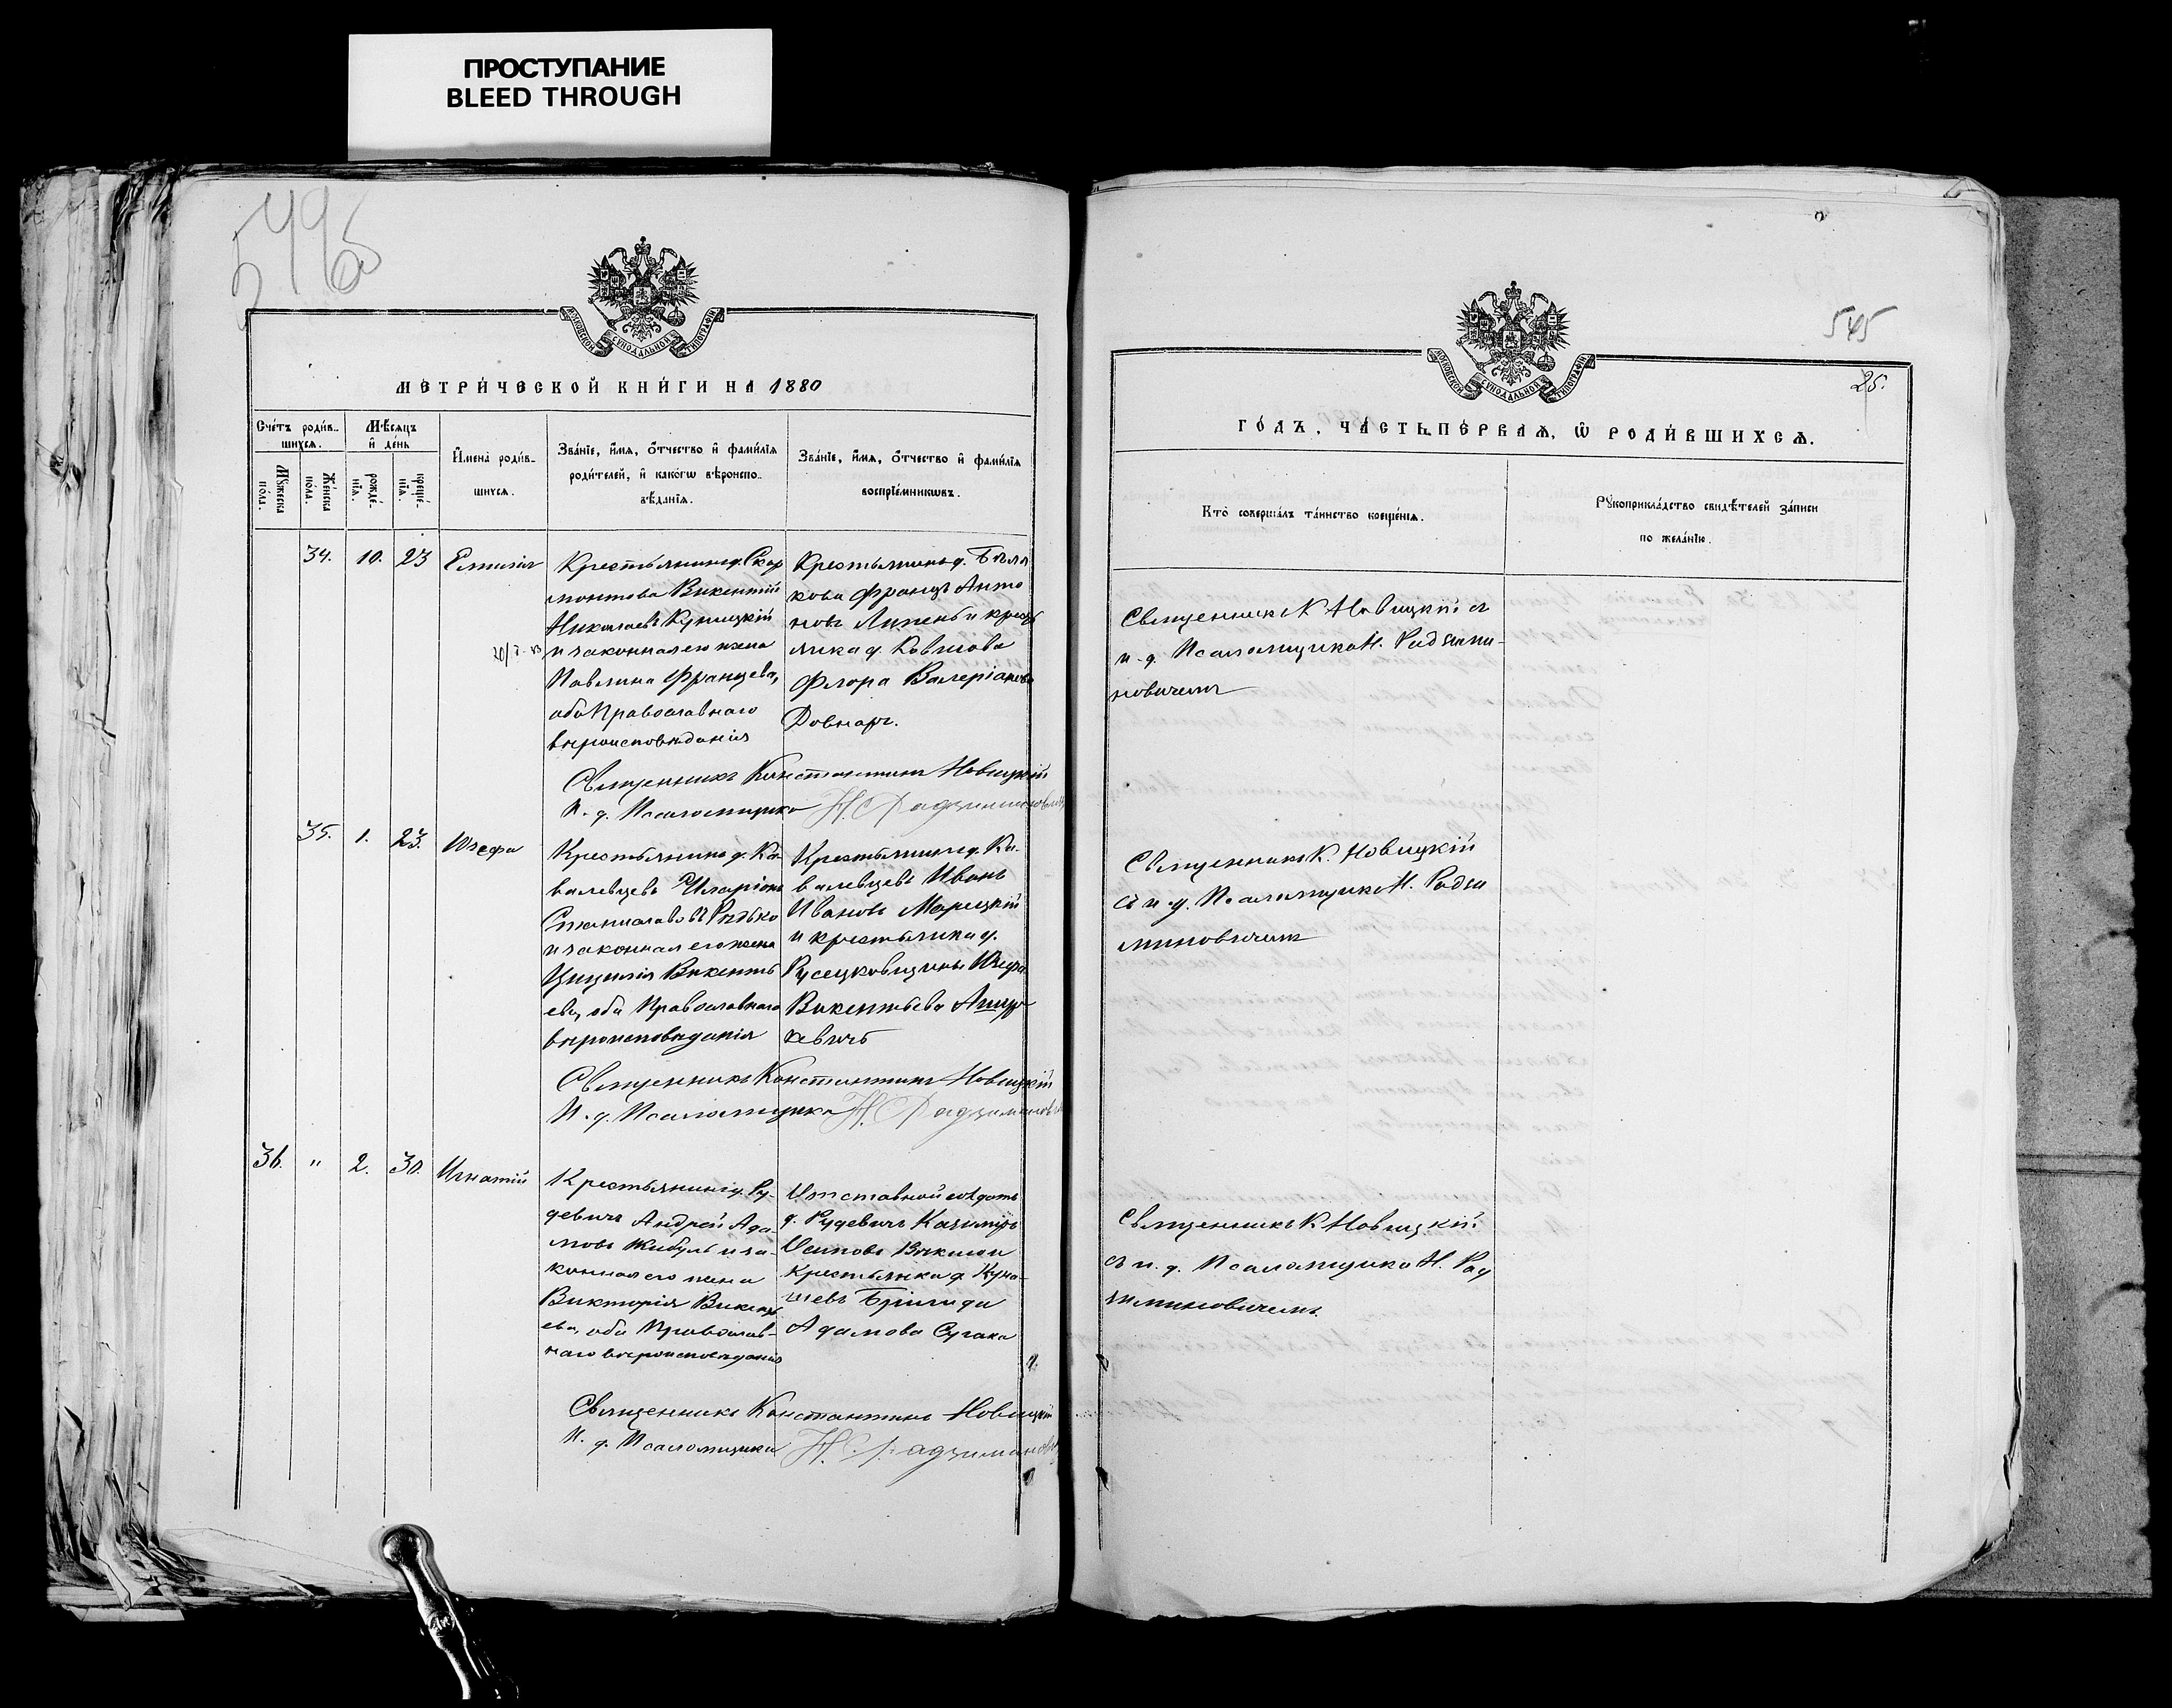 ПРОСТУПАНИЕ
BLEED THROUGH
545
МОСКОВСКОЙ СѴНОДАЛЬНОЙ ТИПОГРАФІИ
МЕТРИ́ЧЕСКОЙ КНИ́ГИ НА 1880
Сче́тъ роди́в-
шихсѧ.
Мꙋ́жеска по́ла.
Же́нска по́ла.
Мѣ́сѧцъ и҆ де́нь
рожде́-нїѧ.
креще́-нїѧ.
И҆мена̀ роди́в-
шихсѧ.
Зва́нїе, и҆́мѧ, ѻ҆́тчество и҆ фами́лїѧ
роди́телей, и҆ како́гѡ вѣроиспо-
вѣ́данїѧ.
Зва́нїе, и҆́мѧ, ѻ҆́тчество и҆ фами́лїѧ
воспрїе́мникѡвъ.
34. 10. 23 Емилія
Крестьянинъ д. Скор
монтова Викентій
Николаевъ Куницкій
и законная его жена
Павлина Францева,
оба Православнаго
вѣроисповѣданія
Крестьянинъ д. Бѣля
кова Францъ Анто
новъ Липень и кресть
янка д. Ковшова
Флора Валеріанова
Довнаръ.
Священникъ Константинъ Новицкій
И. д. Псаломщика Н. Радзиминовичъ
35. 1. 23. Юзефа
Крестьянинъ д. Ко-
валевцевъ Иларіонъ
Станиславовъ Рѣдько
и законная его жена
Цицилія Викенть
ева, оба Православнаго
вѣроисповѣданія
Крестьянинъ д. Ко-
валевцевъ Иванъ
Ивановъ Марецкій
и крестьянка д.
Русецковщины Юзефа
Викентьева
Священникъ Константинъ Новицкій
И. д. Псаломщика Н. Радзиминовичъ
36. " 2. 30. Игнатій
Крестьянинъ д. Ру-
девичъ Андрей Ада-
мовъ Жибуль и за-
конная его жена
Викторія Викенть
ева, оба Православ-
наго вѣроисповѣданія
Отставной солдатъ
д. Рудевичъ Казиміръ
Осиповъ
крестьянка д. Куна-
шевъ Бригида
Адамова Сугака
Священникъ Константинъ Новицкій
И. д. Псаломщика Н. Радзиминовичъ
545
25.
МОСКОВСКОЙ СѴНОДАЛЬНОЙ ТИПОГРАФІИ
ГО́ДЪ, ЧА́СТЬ ПЕ́РВАѦ, Ѡ҆ РОДИ́ВШИХСѦ.
Кто̀ соверша́лъ та́инство креще́нїѧ.
Рꙋкоприкла́дство свидѣ́телей за́писи
по жела́нїю.
Священникъ К Новицкій съ
и. д. Псаломщика Н. Радзими-
новичемъ
Священникъ К. Новицкій
съ и. д. Псаломщика Н. Радзи
миновичемъ
Священникъ К. Новицкій
съ и. д. Псаломщика Н. Рад
зиминовичемъ.